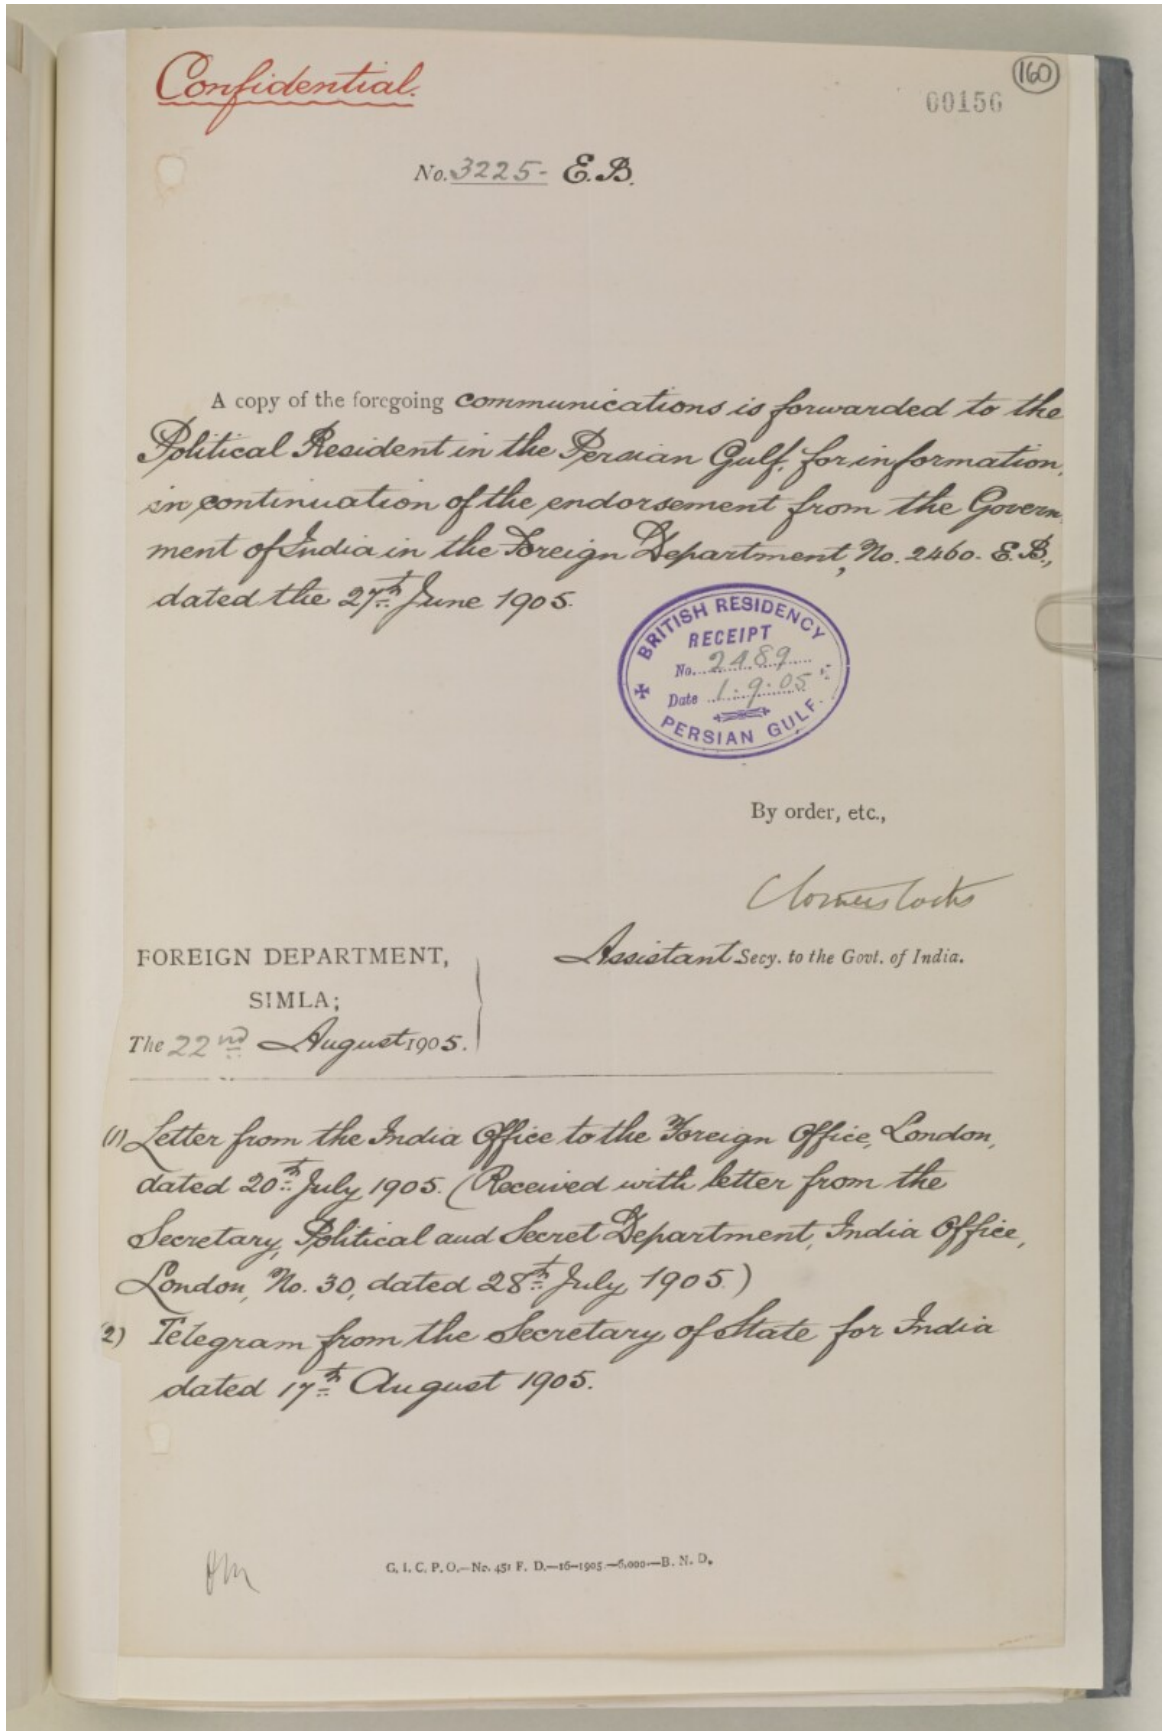 Confidential.
160
00156
No. 3225- E.B.
A copy of the foregoing communications is forwarded to the
Political Resident in the Persian Gulf, for information,
in continuation of the endorsement from the Govern
ment of India in the Foreign Department, No. 2460. E.B.,
dated the 27th June 1905.
BRITISH RESIDENCY
RECEIPT
No. 2489
Date 1.9.05
PERSIAN GULF.
By order, etc.,
Assistant Secy. to the Govt. of India.
FOREIGN DEPARTMENT,
SIMLA;
The 22nd August 1905.
(1) Letter from the India Office to the Foreign Office, London,
dated 20th July 1905. (Received with letter from the
Secretary, Political and Secret Department, India Office,
London, No. 30, dated 28th July 1905.)
2) Telegram from the Secretary of State for India
dated 17th August 1905.
G. I. C. P. O.—No. 451 F. D.—16-1905.—6,000—B. N. D.